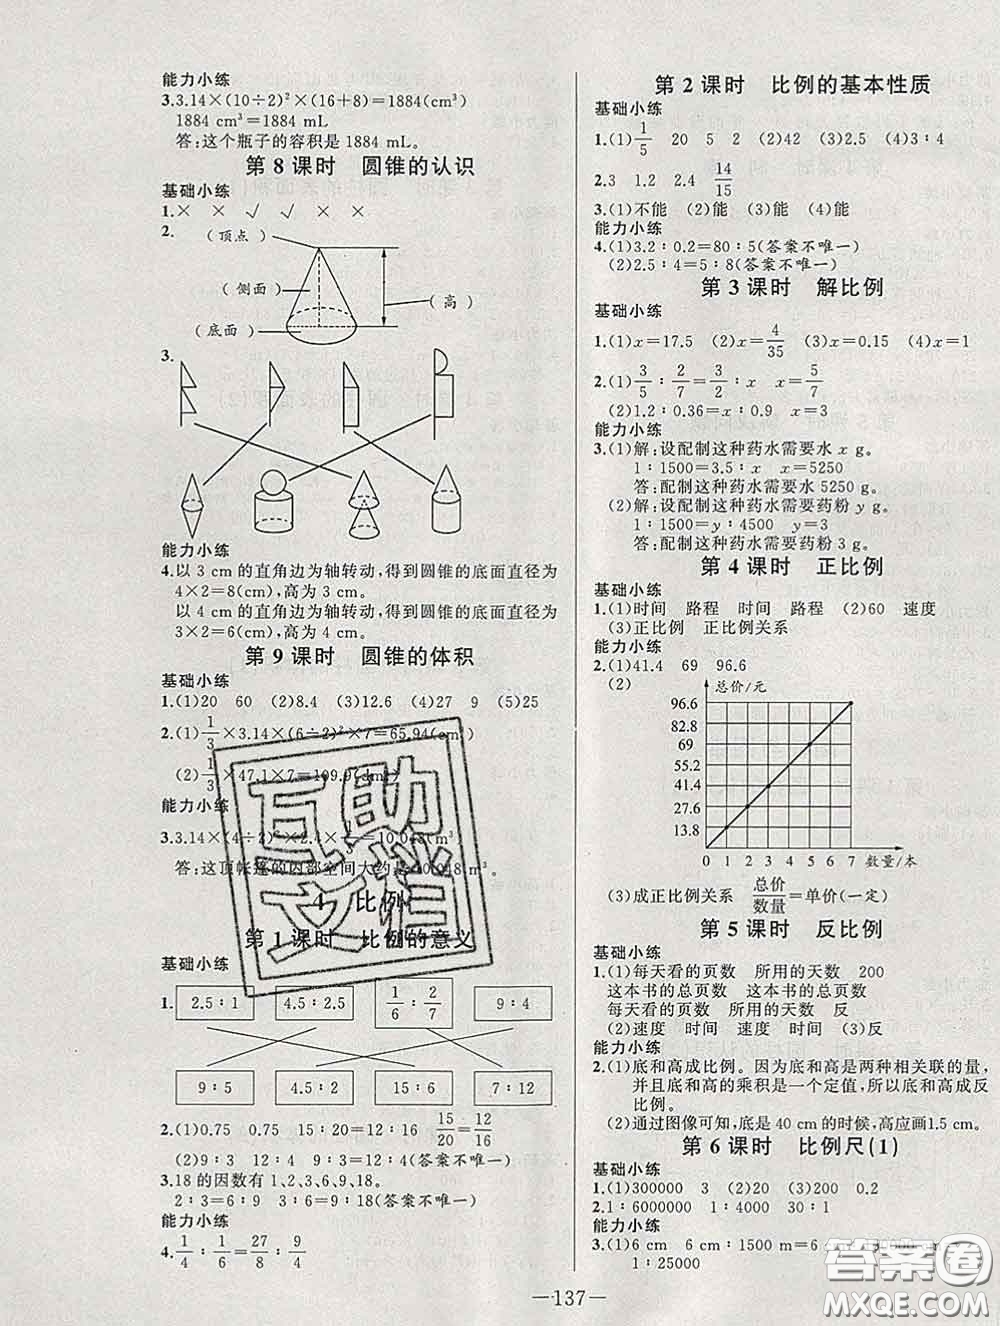 能力小练
3.3.14×(10÷2)²×(16+8)=1884(cm³)
1884 cm³=1884 mL
答:这个瓶子的容积是 1884 mL。
第 8 课时 圆锥的认识
基础小练
1.× × √ √ × ×
2.
(顶点)
(侧面)
(高)
(底面)
3.
能力小练
4.以 3 cm 的直角边为轴转动,得到圆锥的底面直径为
4×2=8(cm),高为 3 cm。
以 4 cm 的直角边为轴转动,得到圆锥的底面直径为
3×2=6(cm),高为 4 cm。
第 9 课时 圆锥的体积
基础小练
1.(1)20 60 (2)8.4 (3)12.6 (4)27 9 (5)25
2.(1)1/3×3.14×(6÷2)²×7=65.94(cm³)
(2)1/3×47.1×7=109.9(dm³)
能力小练
3.3.14×(4÷2)²×2.4×1/3=10.048(m³)
答:这顶帐篷的内部空间大约是 10.048 m³。
4 比例
第 1 课时 比例的意义
基础小练
1.
2.5∶1 4.5∶2.5 1/6∶2/7 9∶4
9∶5 4.5∶2 15∶6 7∶12
2.(1)0.75 0.75 15∶20=12∶16 15/20=12/16
(2)9∶6 12∶8 9∶6=12∶8(答案不唯一)
3.18 的因数有 1、2、3、6、9、18。
2∶3=6∶9 3∶6=9∶18(答案不唯一)
能力小练
4.1/4∶1/6=27/8∶9/4
第 2 课时 比例的基本性质
基础小练
1.(1)1/5 20 5 2 (2)42 (3)2.5 (4)3∶4
2.3 1.2 2.4 14/15
3.(1)不能 (2)能 (3)能 (4)能
能力小练
4.(1)3.2∶0.2=80∶5(答案不唯一)
(2)2.5∶4=5∶8(答案不唯一)
第 3 课时 解比例
基础小练
1.(1)x=17.5 (2)x=4/35 (3)x=0.15 (4)x=1
2.(1)3/5∶2/7=3/2∶x x=5/7
(2)1.2∶0.36=x∶0.9 x=3
能力小练
3.(1)解:设配制这种药水需要水 x g。
1∶1500=3.5∶x x=5250
答:配制这种药水需要水 5250 g。
(2)解:设配制这种药水需要药粉 y g。
1∶1500=y∶4500 y=3
答:配制这种药水需要药粉 3 g。
第 4 课时 正比例
基础小练
1.(1)时间 路程 时间 路程 (2)60 速度
(3)正比例 正比例关系
能力小练
2.(1)41.4 69 96.6
(2)
总价/元
96.6
82.8
69
55.2
41.4
27.6
13.8
0 1 2 3 4 5 6 7 数量/本
(3)成正比例关系 总价/数量=单价(一定)
第 5 课时 反比例
基础小练
1.(1)每天看的页数 所用的天数 200
这本书的总页数 这本书的总页数
每天看的页数 所用的天数 反
(2)速度 时间 速度 时间 (3)反
能力小练
2.(1)底和高成反比例。因为底和高是两种相关联的量,
并且底和高的乘积是一个定值,所以底和高成反
比例。
(2)通过图像可知,底是 40 cm 的时候,高应画1.5 cm。
第 6 课时 比例尺(1)
基础小练
1.(1)300000 3 (2)20 (3)200 0.2
2.1∶6000000 1∶4000 30∶1
能力小练
3.(1)6 cm 6 cm∶1500 m=6
1∶25000
—137—
互助
文作
答案圈
MXQE.COM